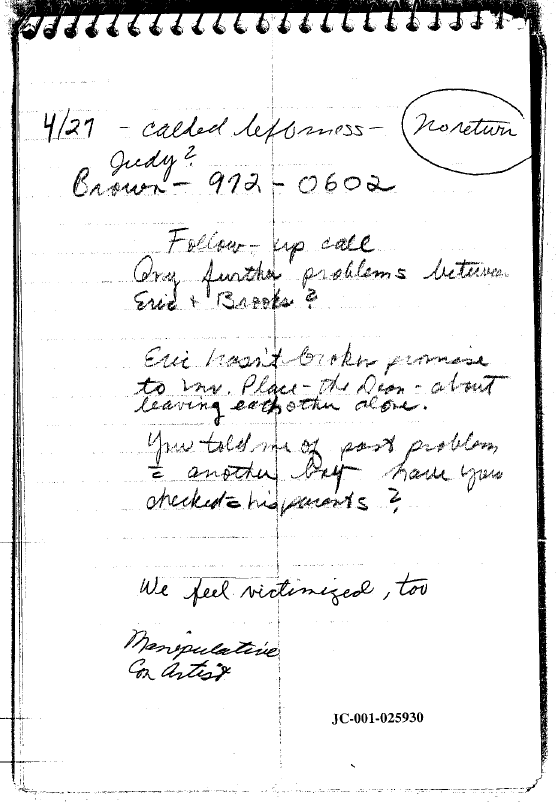 4/27 - called left mess - No return
Judy?
Brown - 972-0602
Follow-up call
Any further problems between
Eric + Brooks?
Eric hasn't broken promise
to Mr. Place - the Dean - about
leaving each other alone.
You told me of past problem
= another boy have you
checked = his parents?
We feel victimized, too
Manipulative
Con Artist
JC-001-025930